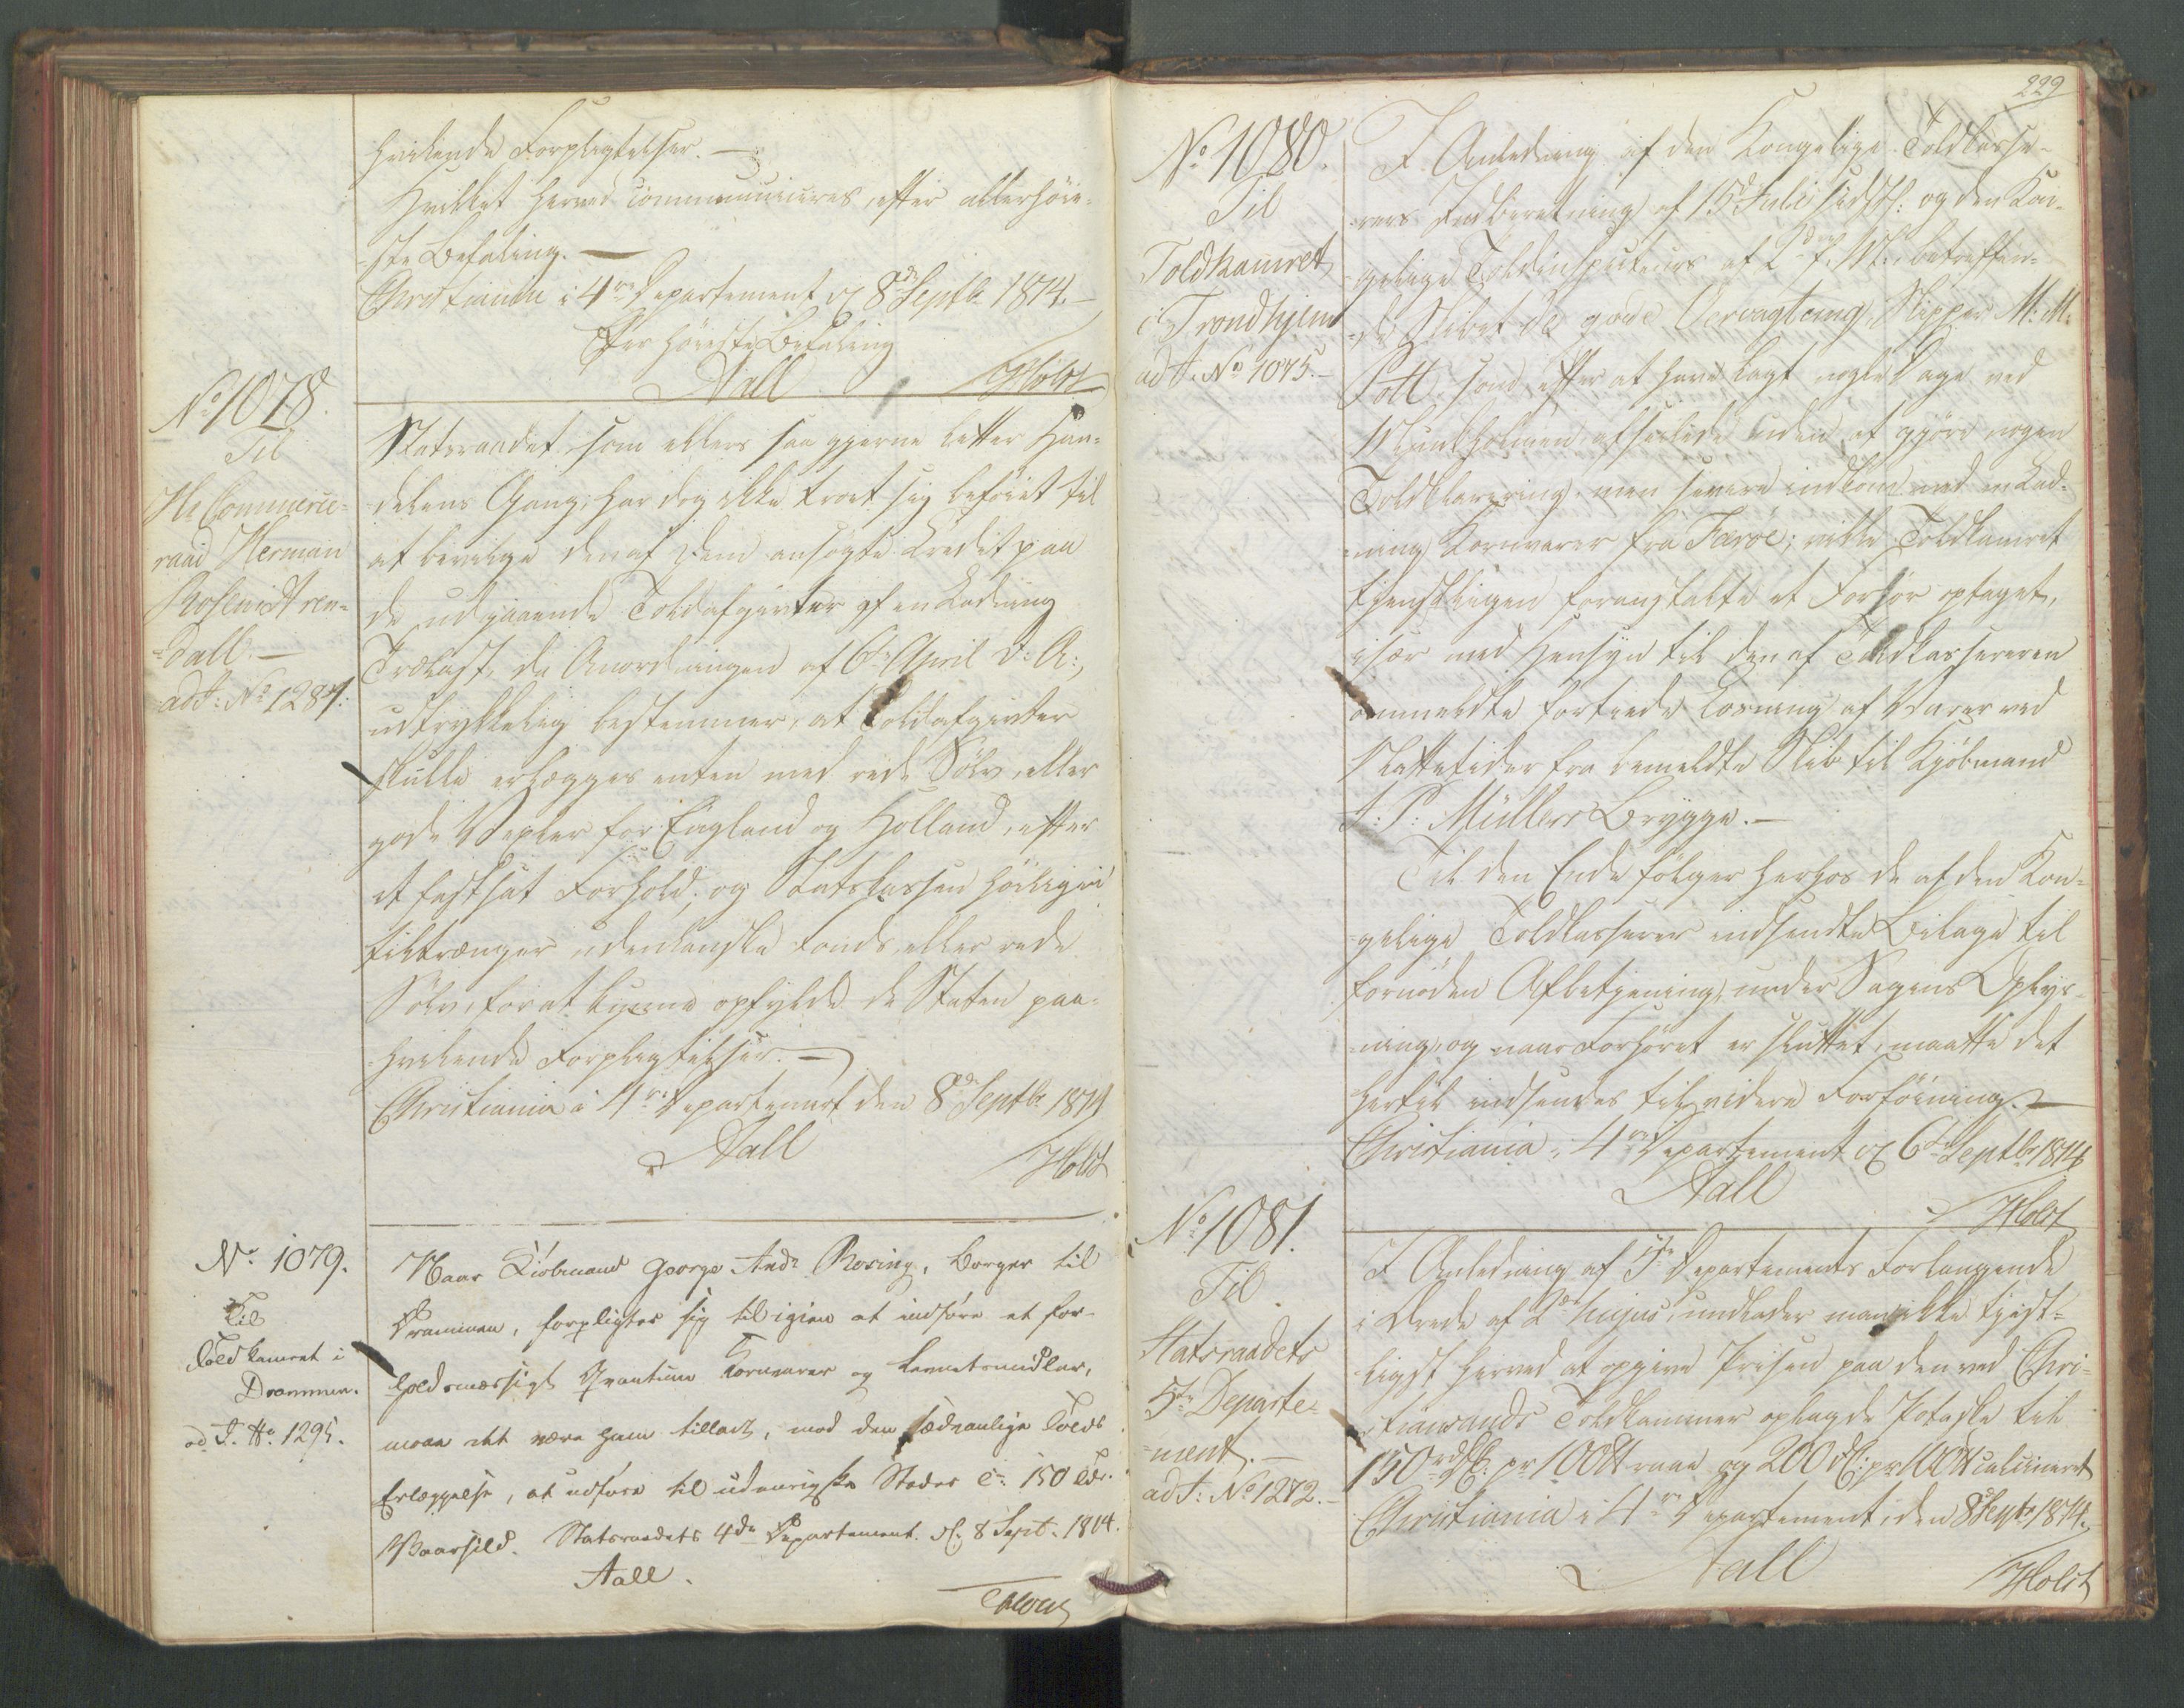 hvilende Forpligtelser. —
Hvilket herved communiceres, efter allerhöie-
ste Befaling. —
Christiania i 4de Departement d: 8de Septbr 1814. —
Efter höieste Befaling
Aall Holst
No 1078.
Til
Hr Commerce-
raad Herman
Roscnidt ren-
dall. —
ad J: No 1284:
Statsraadet som ellers saa gjerne letter Han-
delens Gang, har dog ikke troet sig beföiet til
at bevilge den af Dem ansögte Credit paa
de udgaaende Toldafgivter af en Ladning
Trælast, da Anordningen af 6te April d: A:,
udtrykkelig bestemmer, at Toldafgivter
skulle erlægges enten med rede Sölv, eller
gode Vexler for England og Holland, efter
et fastsat Forhold; og Statskassen höiligen
tiltrænger udenlanske Fonds, eller rede
Sölv, for at kunne opfylde de Staten paa-
hvilende Forpligtelser. —
Christiania i 4de Departement den 8de Septbr 1814
Aall
Holst
No 1079.
Til
Toldkamret i
Drammen.
ad J. No 1295.
Naar Kiöbmand George Andr Rosing, Borger til
Drammen, forpligter sig til igien at indföre et for-
holdsmæssigt Qvantum Kornvarer og Levnetsmidler,
maa det være ham tilladt, mod den sædvanlige Tolds
Erlæggelse, at udföre til udenrigske Steder Ca 150 Tdr.
Vaarsild. Statsraadets 4de Departement d: 8 Sept. 1814.
Aall.
Holst
229
No 1080.
Til
Toldkamret
i Trondhjem
ad J. No 1075. —
I Anledning af den Kongelige Toldkasse-
rers Indberetning af 15de Juli sidstl: og den Kon-
gelige Toldinspecteurs af 2den f: M:, betreffen-
de Skibet de gode Vervagting, Skipper M: M:
Pott, som, efter at have lagt nogle Dage ved
Munkholmen, afseilede uden at gjöre nogen
Toldklarering, men senere indkom med en Lad-
ning Kornvarer fra Færöe; ville Toldkamret
tjenstligen foranstalte et Forhör optaget,
især med Hensyn til den af Toldkassereren
anmeldte fortiede Losning af Varer ved
Nattetider fra bemeldte Skib til Kjöbmand
J: P: Müllers Brygge. —
Til den Ende fölger herhos de af den Kon-
gelige Toldkasserer indsendte Bilage til
fornöden Afbetjening, under Sagens Oplys-
ning, og naar Forhöret er sluttet, maatte det
hertil indsendes til videre Forföining. —
Christiania i 4de Departement d: 6te Septbr 1814
Aall
Holst
No 1081.
Til
Statsraadets
5te Departe-
ment. —
ad J: No 1272. —
I Anledning af 5te Departements Forlangende
i Brev af 2den hujus, undlader man ikke tjenst-
ligst herved at opgive Prisen paa den ved Chri-
stiansands Toldkammer oplagde Potaske til
150 rdl: pr 100 ℔ raae og 200 rdl: pr 100 ℔ calcineret
Christiania i 4de Departement, den 8de Septbr 1814.
Aall
Holst